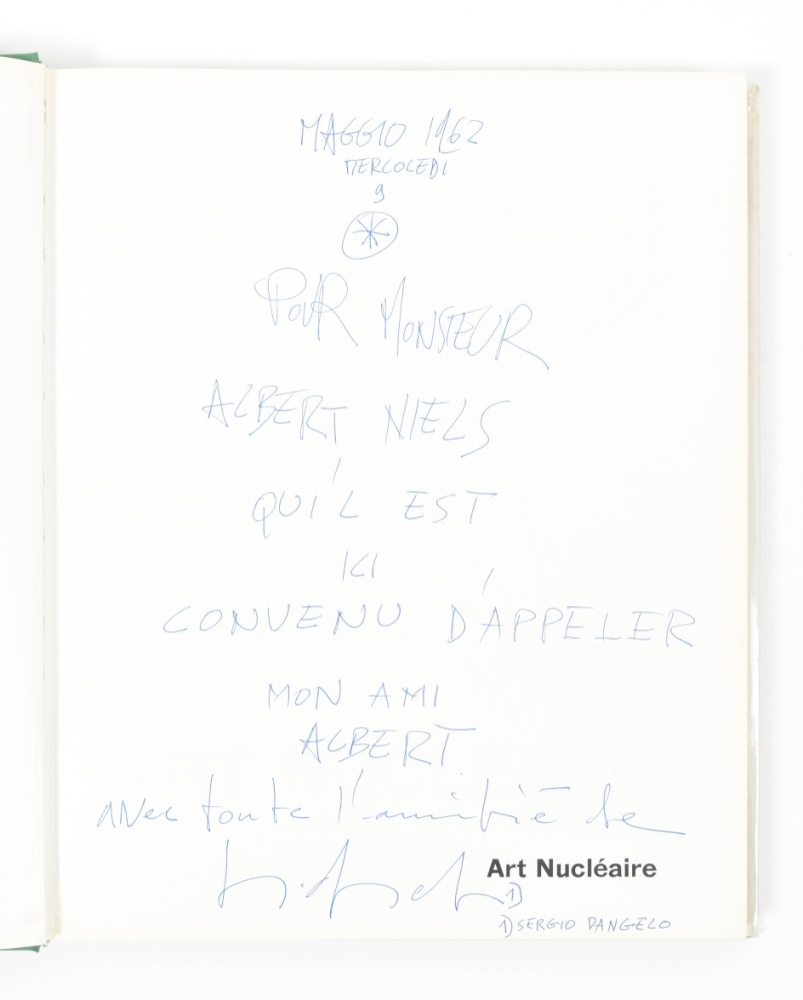 MAGGIO 1962
MERCOLEDI
9
POUR MONSIEUR
ALBERT NIELS
QU'IL EST
ICI
CONVENU D'APPELER
MON AMI
ALBERT
avec toute l'amitié de
Art Nucléaire
1)
1) SERGIO DANGELO